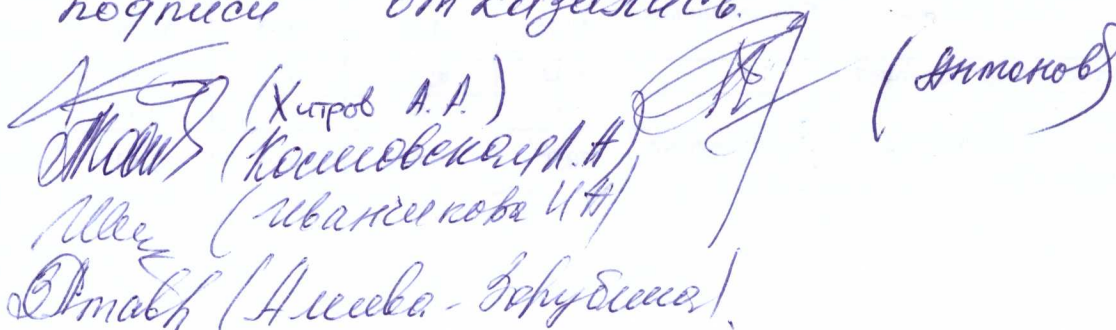 подписи отказались.
(Хитров А.А.) (Антонов)
(Костовская Л.А)
(Иванчикова И А)
(Алиева-Зарубина).